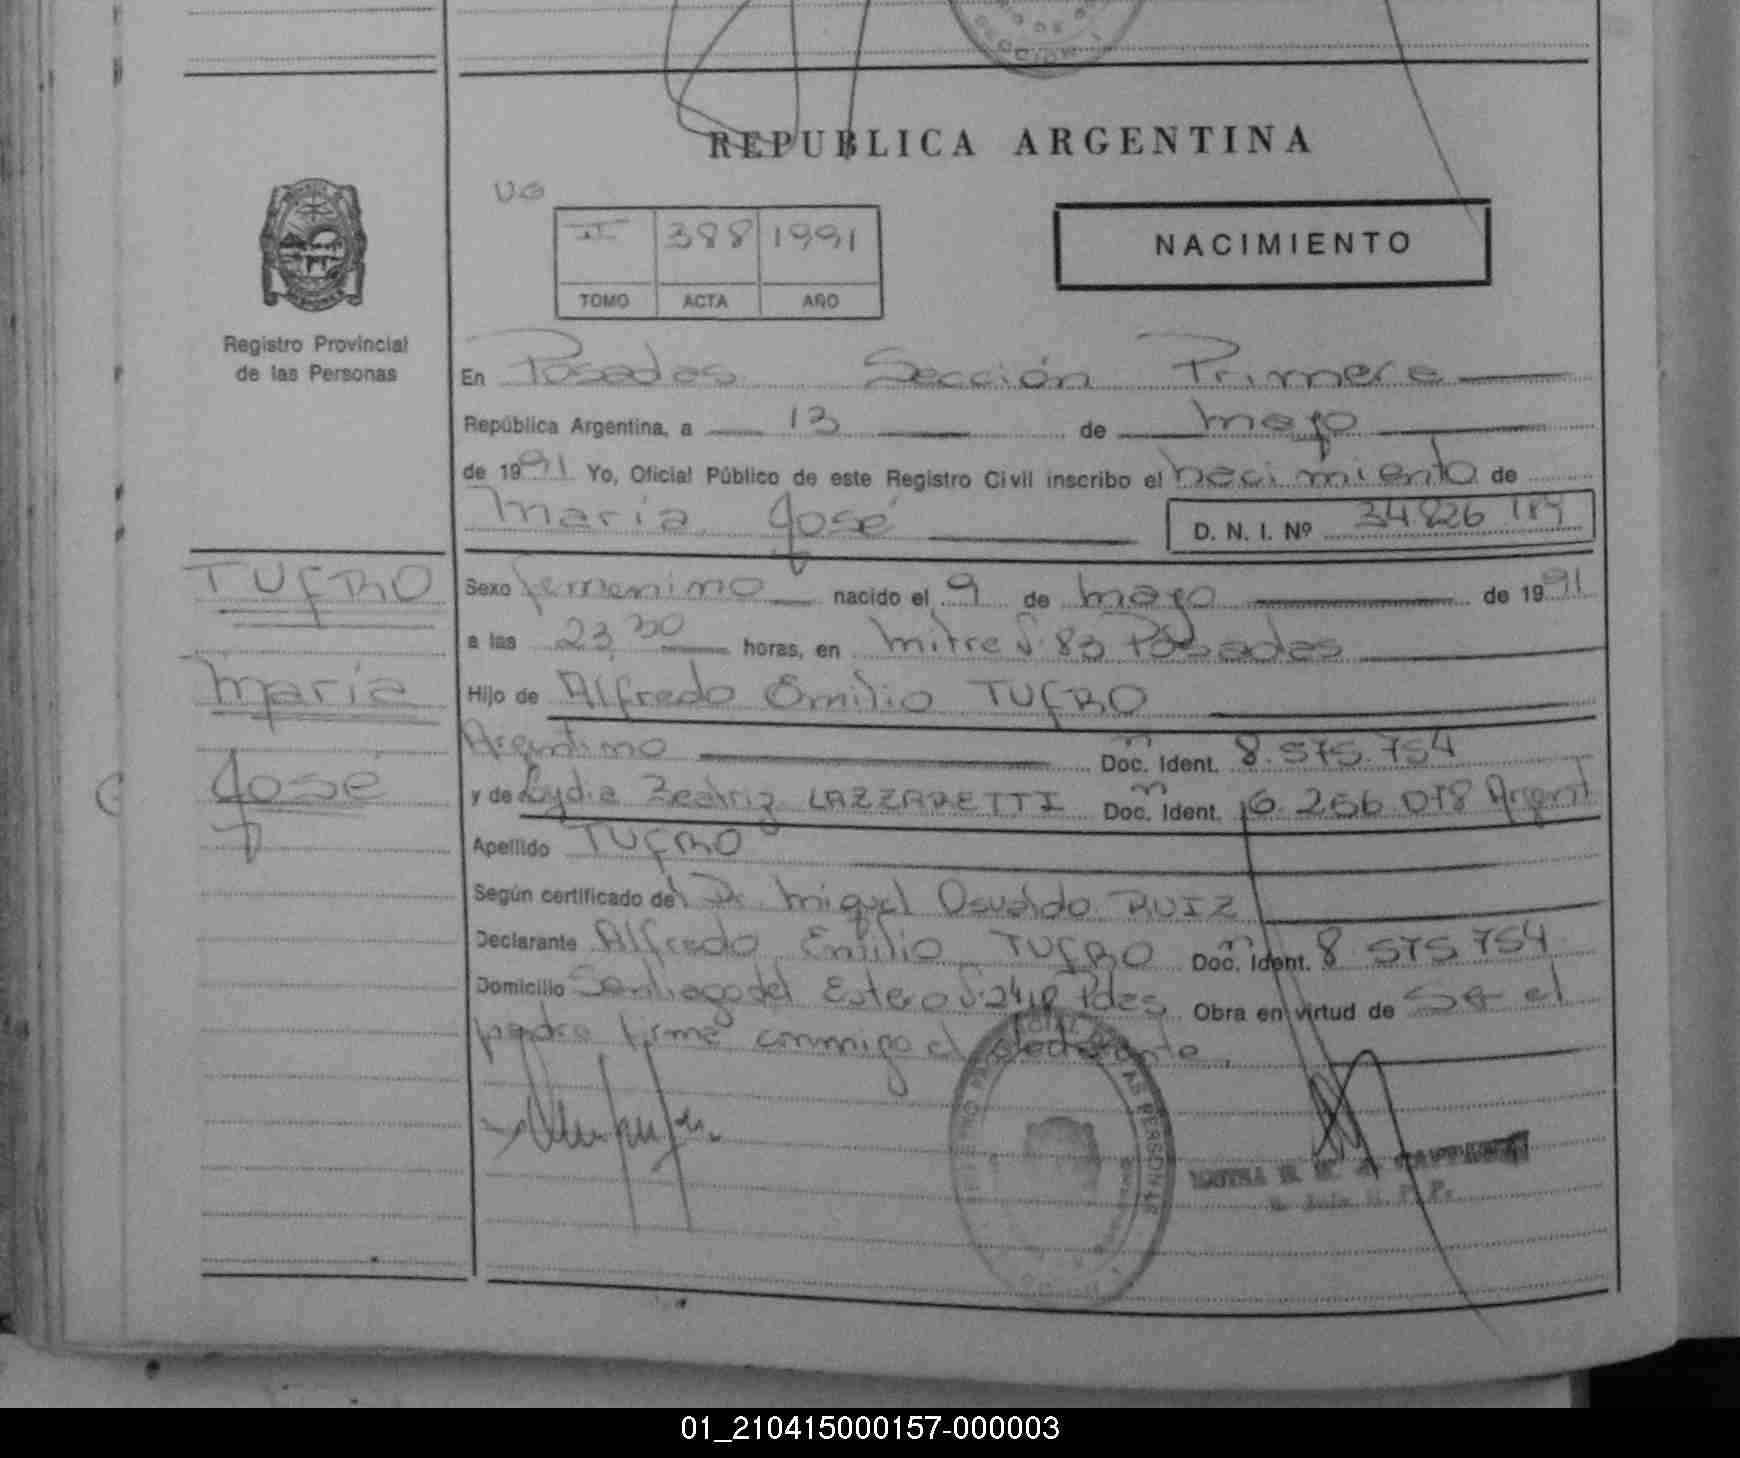 REPUBLICA ARGENTINA
UG
II 388 1991
TOMO ACTA AÑO
NACIMIENTO
Registro Provincial
de las Personas
En Posadas Sección Primera
República Argentina, a 13 de mayo
de 1991 Yo, Oficial Público de este Registro Civil inscribo el nacimiento de
María José D. N. I. Nº 34.826.189
TUFRO
María
José
Sexo femenino nacido el 9 de mayo de 1991
a las 23,30 horas, en Mitre Nº 83 Posadas
Hijo de Alfredo Emilio TUFRO
Argentino Doc. Ident. 8.575.754
y de Lydia Beatriz LAZZARETTI Doc. Ident. 6.256.078 Argent
Apellido TUFRO
Según certificado del Dr. Miguel Osvaldo RUIZ
Declarante Alfredo Emilio TUFRO Doc. Ident. 8.575.754
Domicilio Santiago del Estero Pdas Obra en virtud de Ser el
padre firma conmigo el declarante.
01_210415000157-000003